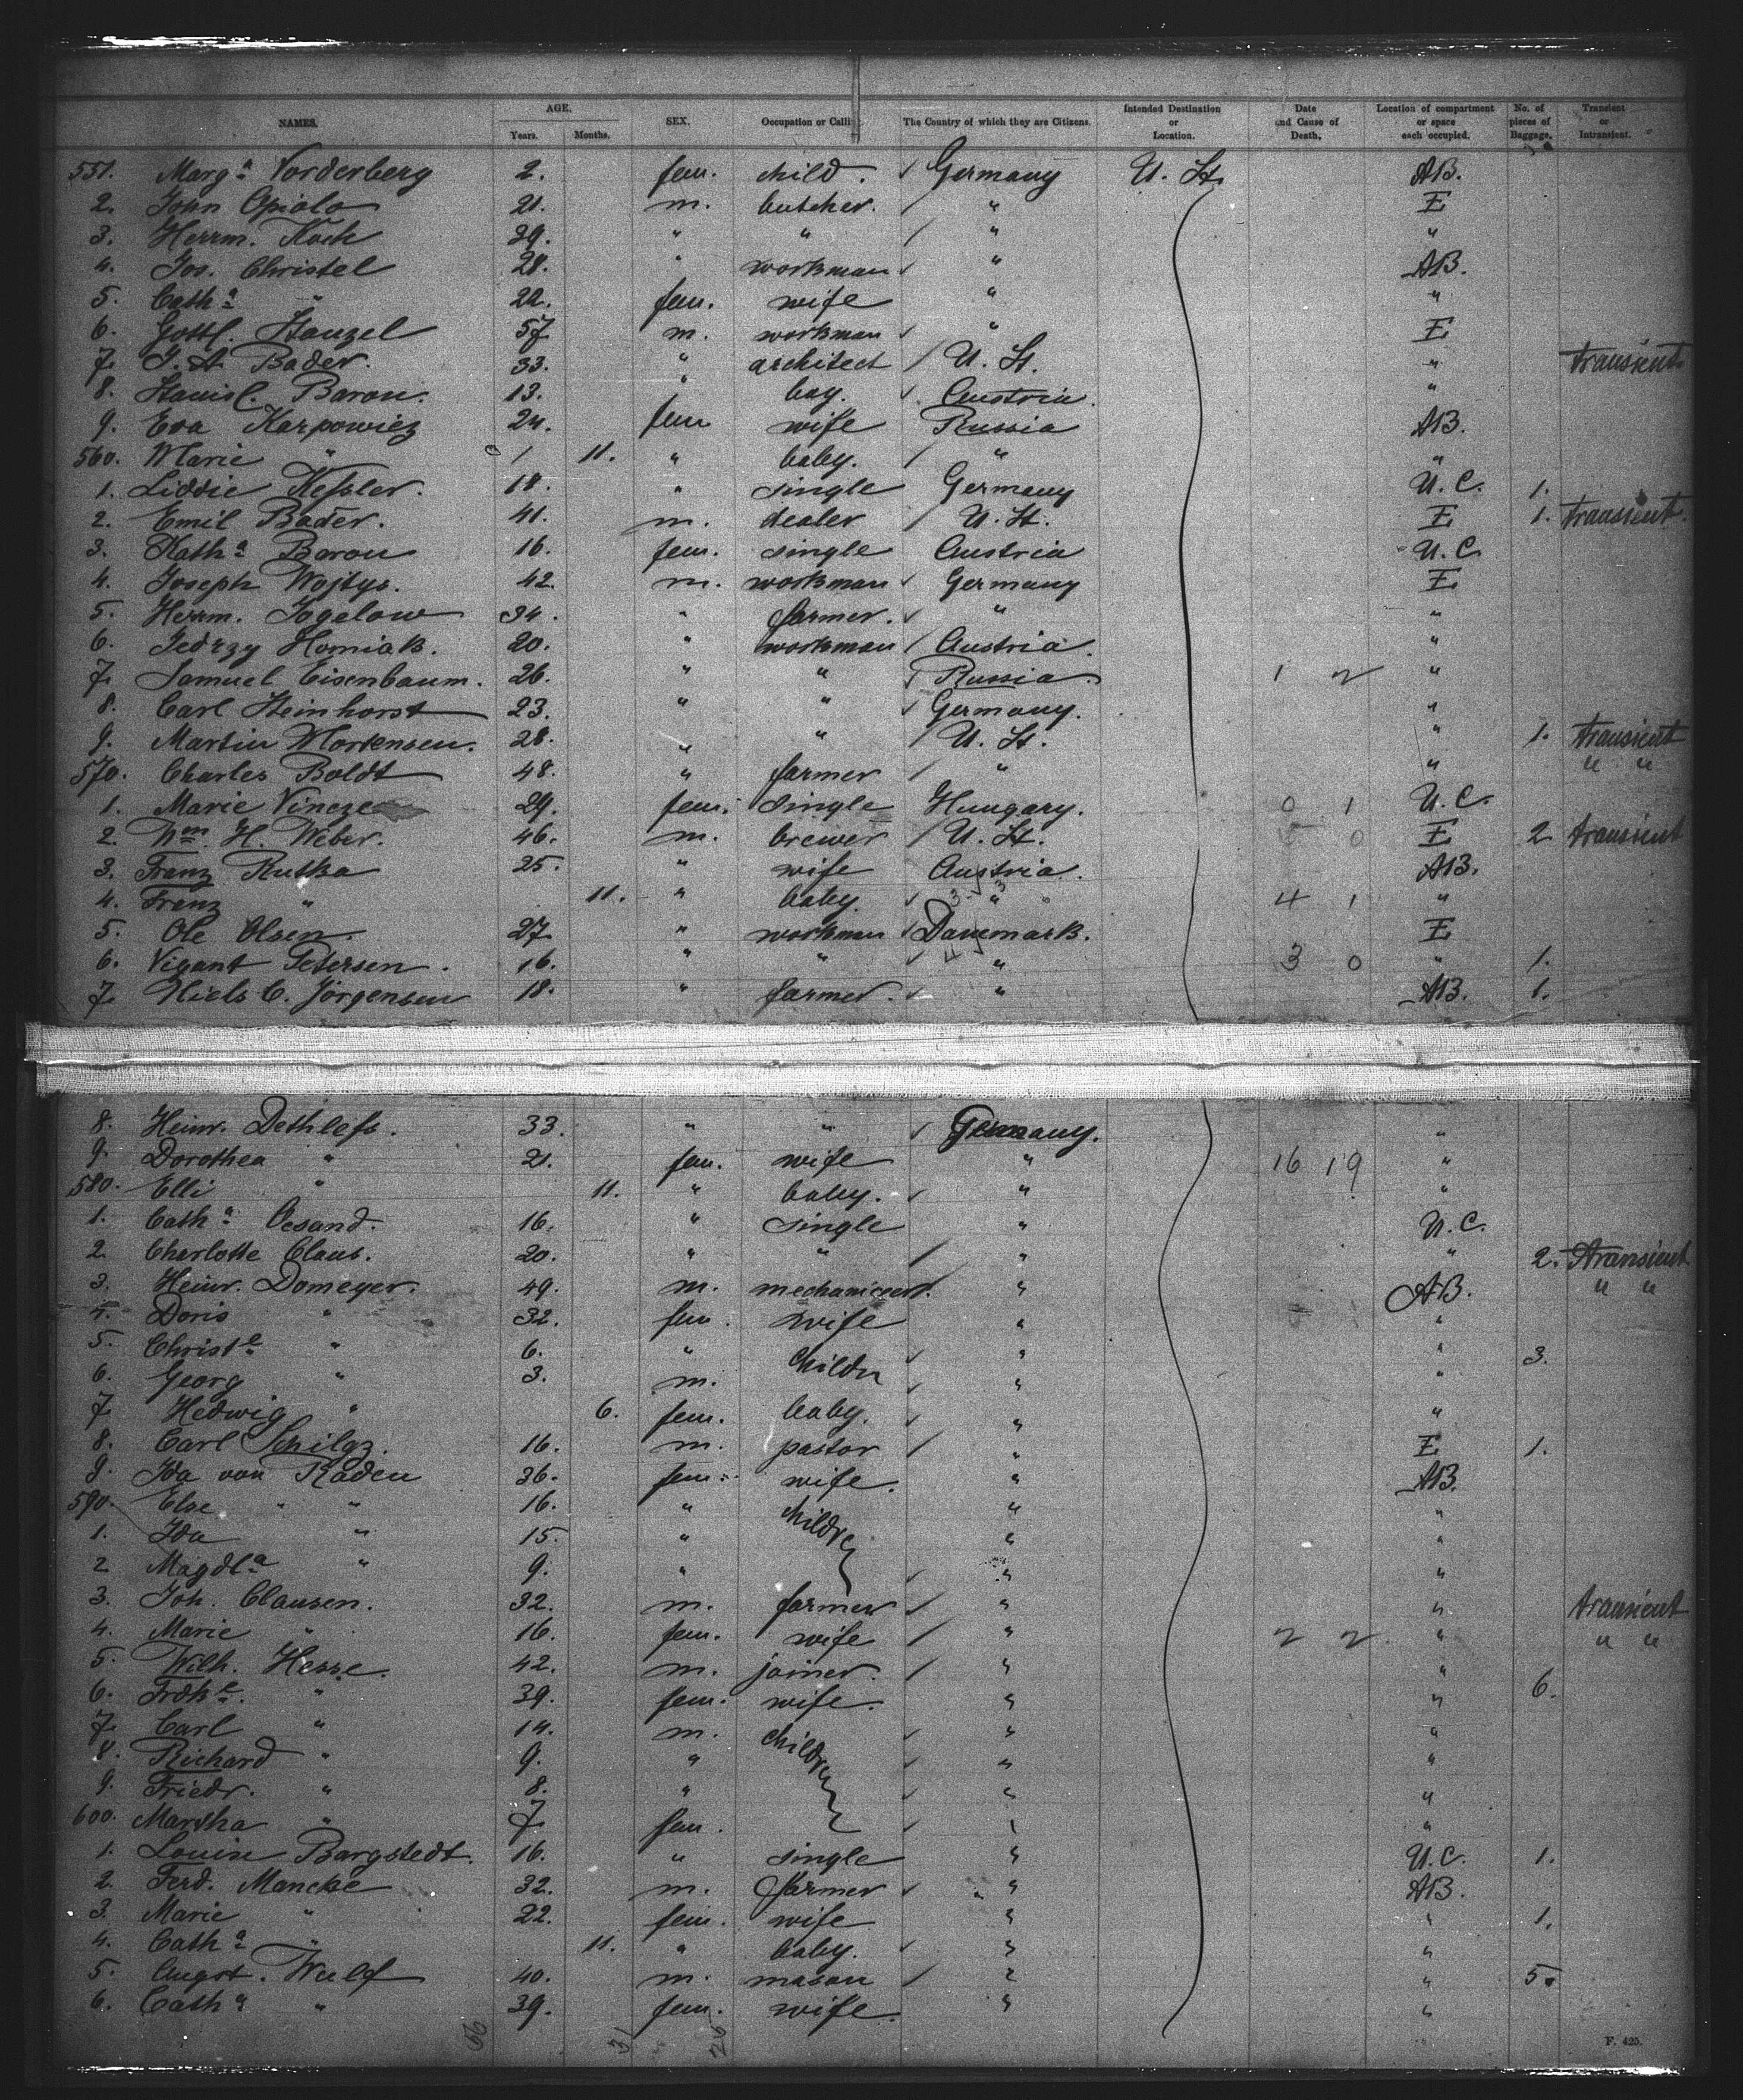 NAMES. AGE. Years. Months. SEX. Occupation or Calling The Country of which they are Citizens. Intended Destination or Location. Date and Cause of Death. Location of compartment or space each occupied. No. of pieces of Baggage. Transient or Intransient.
551. Marg.a Vorderberg 2. fem. child. Germany U. St. AB.
2. John Opiola 21. m. butcher. " E
3. Herrm. Koch 39. " " " "
4. Jos. Christel 28. " workman " AB.
5. Cath.a " 22. fem. wife " "
6. Gottl. Stanzel 57 m. workman " E
7. J. A Bader. 33. " architect U. St. " transient
8. Stanisl. Baron. 13. " boy. Austria. "
9. Eva Karpowicz 24. fem wife Russia AB.
560. Marie " 11. " baby. " "
1. Liddie Kessler. 18. " single Germany U. C. 1.
2. Emil Bader. 41. m. dealer U. St. E 1. transient.
3. Kath.a Baron 16. fem. single Austria U. C.
4. Joseph Wojtys. 42. m. workman Germany E
5. Herrm. Jogelow 34. " farmer. " "
6. Jedrzy Homiak. 20. " workman Austria. "
7. Samuel Eisenbaum. 26. " " Russia. 1 2 "
8. Carl Steinhorst 23. " " Germany. "
9. Martin Mortensen. 28. " " U. St. " 1. transient
570. Charles Boldt 48. " farmer " " " "
1. Marie Vincze 29. fem. single Hungary. 0 1 U. C.
2. Wm. H. Weber. 46. m. brewer U. St. 5 0 E 2 transient
3. Franz Rutka 25. " wife Austria. AB.
4. Franz " 11. " baby. " 4 1 "
5. Ole Olsen. 27 " workman Danemark. E
6. Vigant Petersen. 16. " " " 3 0 " 1.
7. Niels C. Jörgensen 18. " farmer. " AB. 1.
8. Heinr. Dethlefs. 33. " " Germany. "
9. Dorothea " 21. fem. wife " 16 19 "
580. Elli " 11. " baby. " "
1. Cath.a Oesand. 16. " single " U. C.
2 Charlotte Claus. 20. " " " " 2. transient
3. Heinr. Domeyer. 49. m. " AB. " "
4. Doris " 32. fem. wife " "
5. Christ.e " 6. " childn " " 3.
6. Georg " 3. m. " "
7 Hedwig " 6. fem. baby. " "
8. Carl Schilgz. 16. m. pastor " E 1.
9. Ida von Raden 36. fem. wife. " AB.
590. Else " " 16. " children " "
1. Ida " 15. " " "
2 Magdl.a " 9. " " "
3. Joh. Clausen. 32. m. farmer " " transient
4. Marie " 16. fem. wife " 2 2 " " "
5. Wilh. Hesse. 42. m. joiner. " "
6. Frdk.e " 39. fem. wife. " " 6.
7 Carl " 14. m. children " "
8. Richard " 9. " " "
9. Friedr. " 8. " " "
600. Martha " 7 fem. " "
1. Louise Bargstedt. 16. " single " U. C. 1.
2. Ferd. Mancke 32. m. farmer " AB.
3. Marie " 22. fem. wife " " 1.
4. Cath.a " 11. " baby. " "
5. Augst. Wulf 40. m. mason " " 5
6. Cath.a " 39. fem. wife. " "
66 31 26
F. 425.